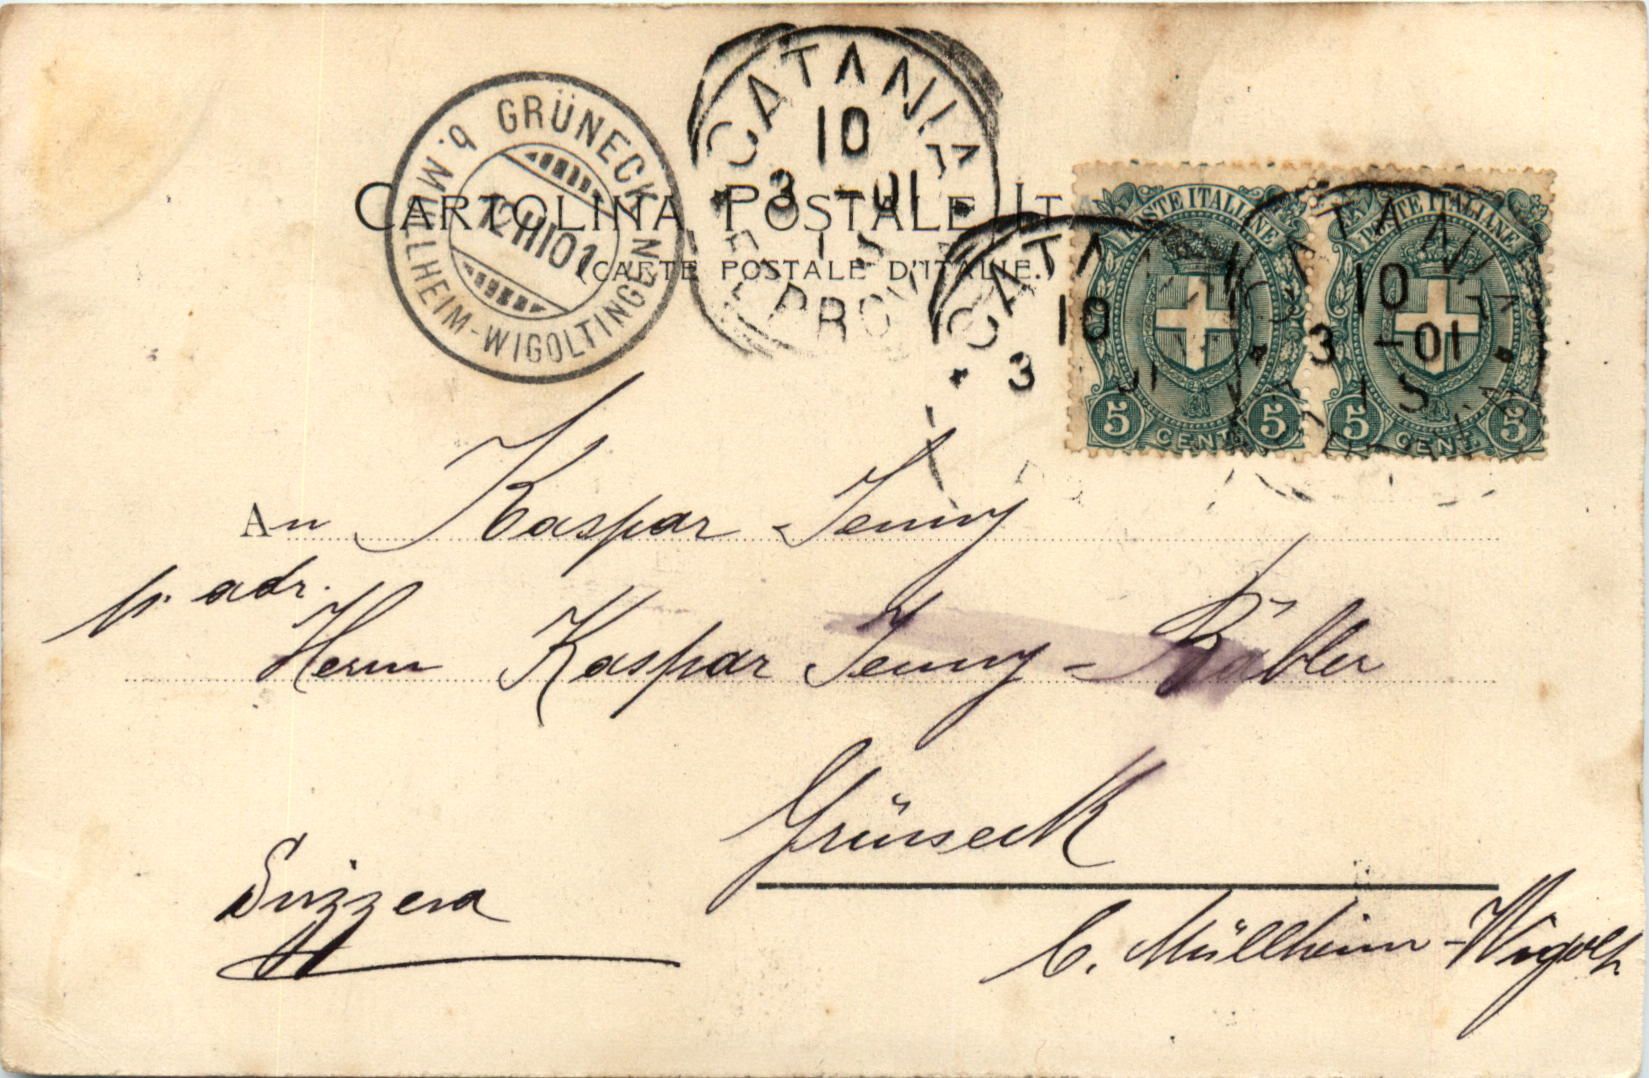 GRÜNECK
b. MÜLLHEIM-WIGOLTINGEN
12 III 01
CATANIA
10
3 - 01
15
CARTOLINA POSTALE ITA
(CARTE POSTALE D'ITALIE.
POSTE ITALIANE
5 CENT. 5
POSTE ITALIANE
5 CENT. 5
CATA
10
3 01
CATANIA
10
3 -01
15
An Kaspar Jenny
p. adr.
Herrn Kaspar Jenny-Bäbler
Grüneck
Svizzera
b. Müllheim-Wigolt.